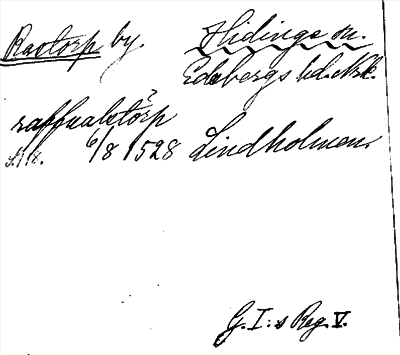 Rastorp by Hidinge sn.
Edsbergs hd. Nrk.
raffualstörp ?
6/8 1528 Lindholmen.
G. I:s Reg. V.